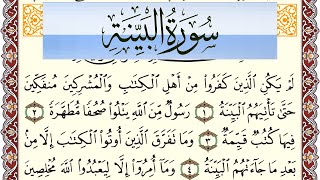 سُورَةُ البَيِّنَةِ
لَمْ يَكُنِ الَّذِينَ كَفَرُوا مِنْ أَهْلِ الْكِتَابِ وَالْمُشْرِكِينَ مُنفَكِّينَ
حَتَّىٰ تَأْتِيَهُمُ الْبَيِّنَةُ ١ رَسُولٌ مِّنَ اللَّهِ يَتْلُوا صُحُفًا مُّطَهَّرَةً ٢
فِيهَا كُتُبٌ قَيِّمَةٌ ٣ وَمَا تَفَرَّقَ الَّذِينَ أُوتُوا الْكِتَابَ إِلَّا مِنْ
بَعْدِ مَا جَاءَتْهُمُ الْبَيِّنَةُ ٤ وَمَا أُمِرُوا إِلَّا لِيَعْبُدُوا اللَّهَ مُخْلِصِينَ